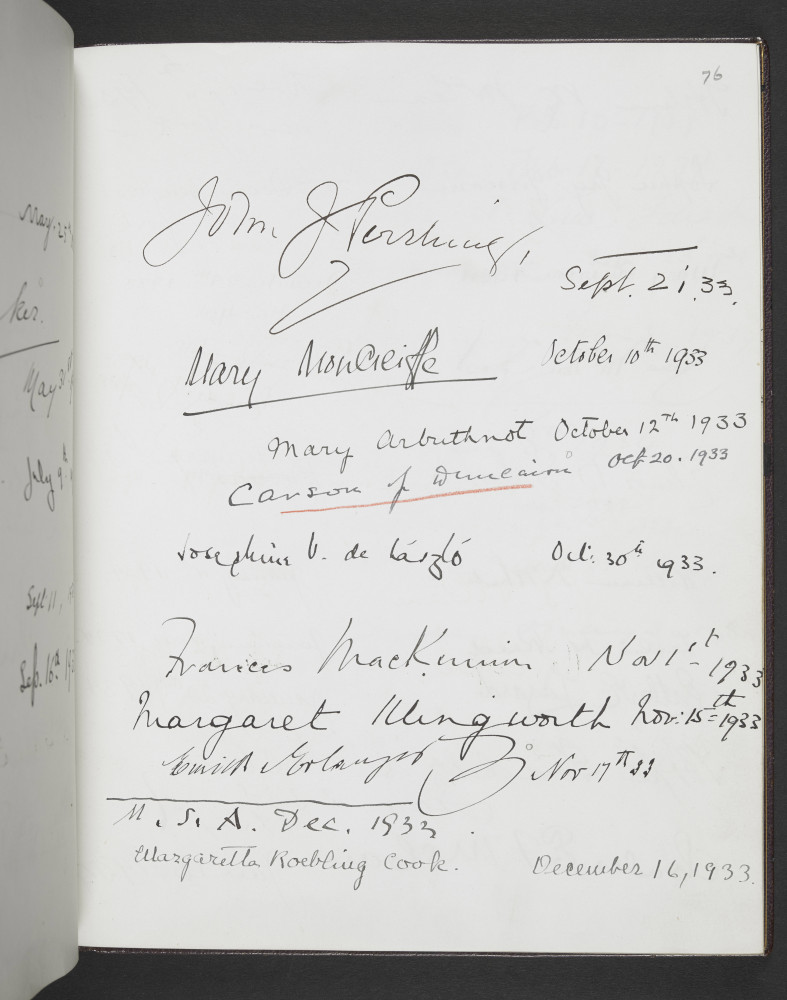 May. 25
ker.
May 31st
July 9th
Sept 11,
Sep. 16th 193
76
John J Pershing,
Sept. 21. 33.
Mary Moncreiffe October 10th 1933
Mary Arbuthnot October 12Th 1933
Carson of Duncairn Oct 20. 1933
Josephine V. de László Oct: 30th 1933.
Frances MacKinnon Nov 1st 1933
Margaret Illingworth Nov: 15th 1933
Nov 17Th 33
M. S. A. Dec. 1933.
Margaretta Roebling Cook. December 16, 1933.